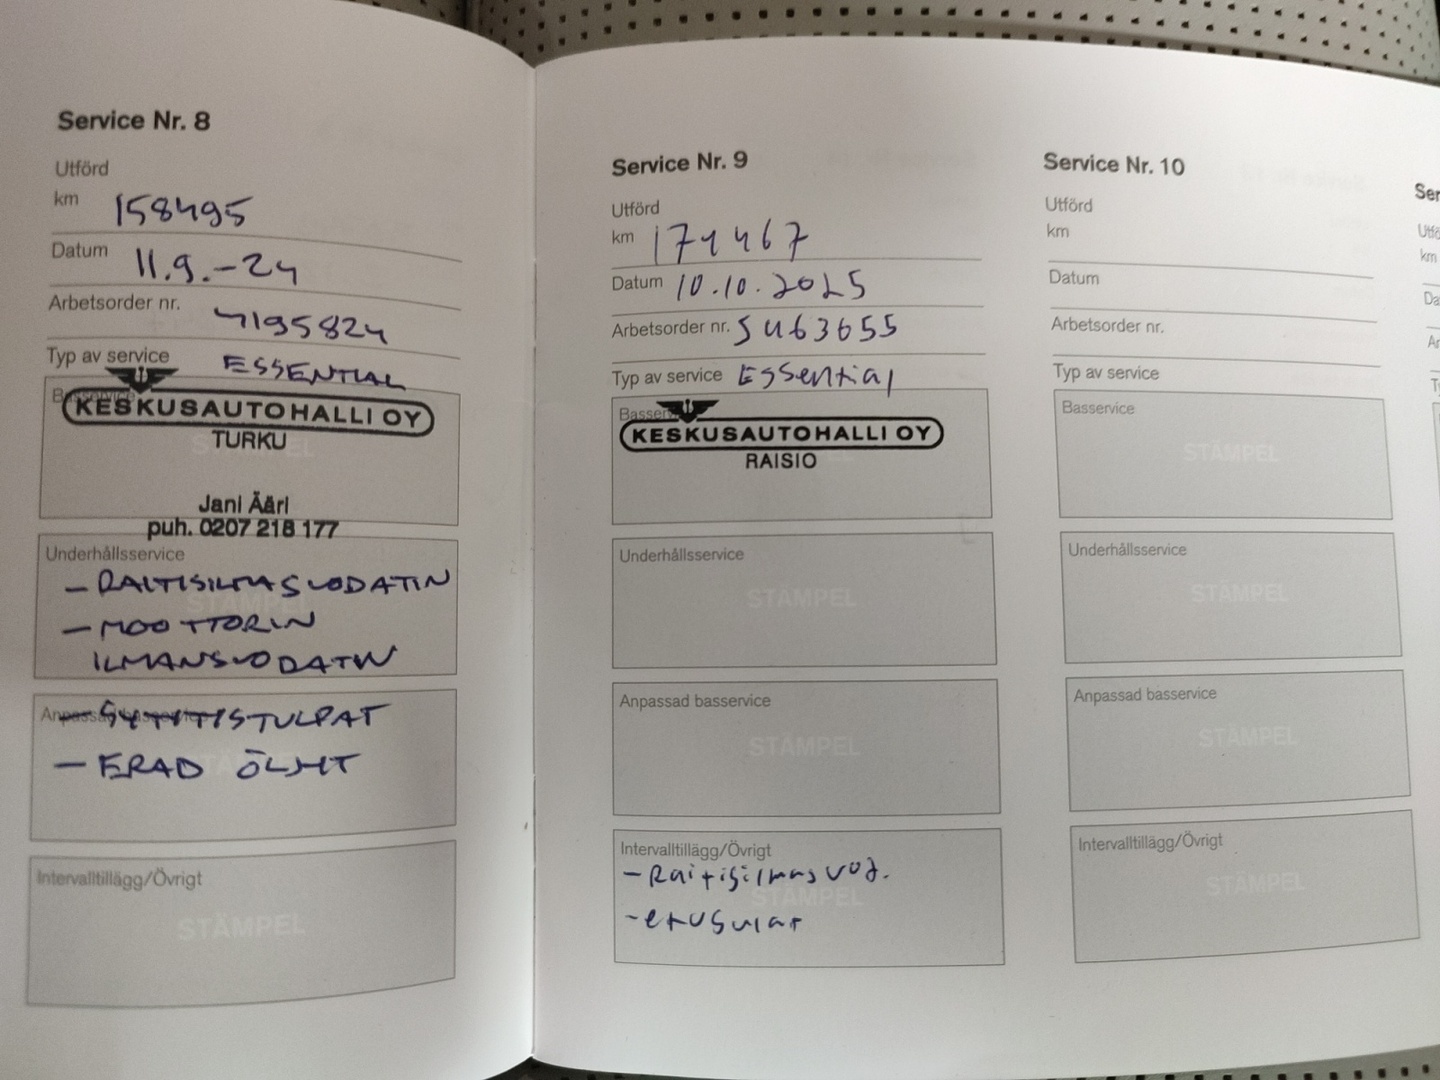 Service Nr. 8
Utförd
km 158495
Datum 11.9.-24
Arbetsorder nr. 4195824
Typ av service ESSENTIAL
Basservice
KESKUSAUTOHALLI OY
TURKU
Jani Ääri
puh. 0207 218 177
Underhållsservice
- RAITISILMASUODATIN
STÄMPEL
- MOOTTORIN
ILMANSUODATIN
Anpassad basservice
- SYTYTISTULPAT
- ERAD ÖLJYT
Intervalltillägg/Övrigt
STÄMPEL
Service Nr. 9
Utförd
km 171467
Datum 10.10.2025
Arbetsorder nr. 5463655
Typ av service Essential
Basser
KESKUSAUTOHALLI OY
RAISIO
Underhållsservice
STÄMPEL
Anpassad basservice
STÄMPEL
Intervalltillägg/Övrigt
- Raitisilmasuod.
STÄMPEL
- etusulat
Service Nr. 10
Utförd
km
Datum
Arbetsorder nr.
Typ av service
Basservice
STÄMPEL
Underhållsservice
STÄMPEL
Anpassad basservice
STÄMPEL
Intervalltillägg/Övrigt
STÄMPEL
Ser
Utfö
km
Da
Ar